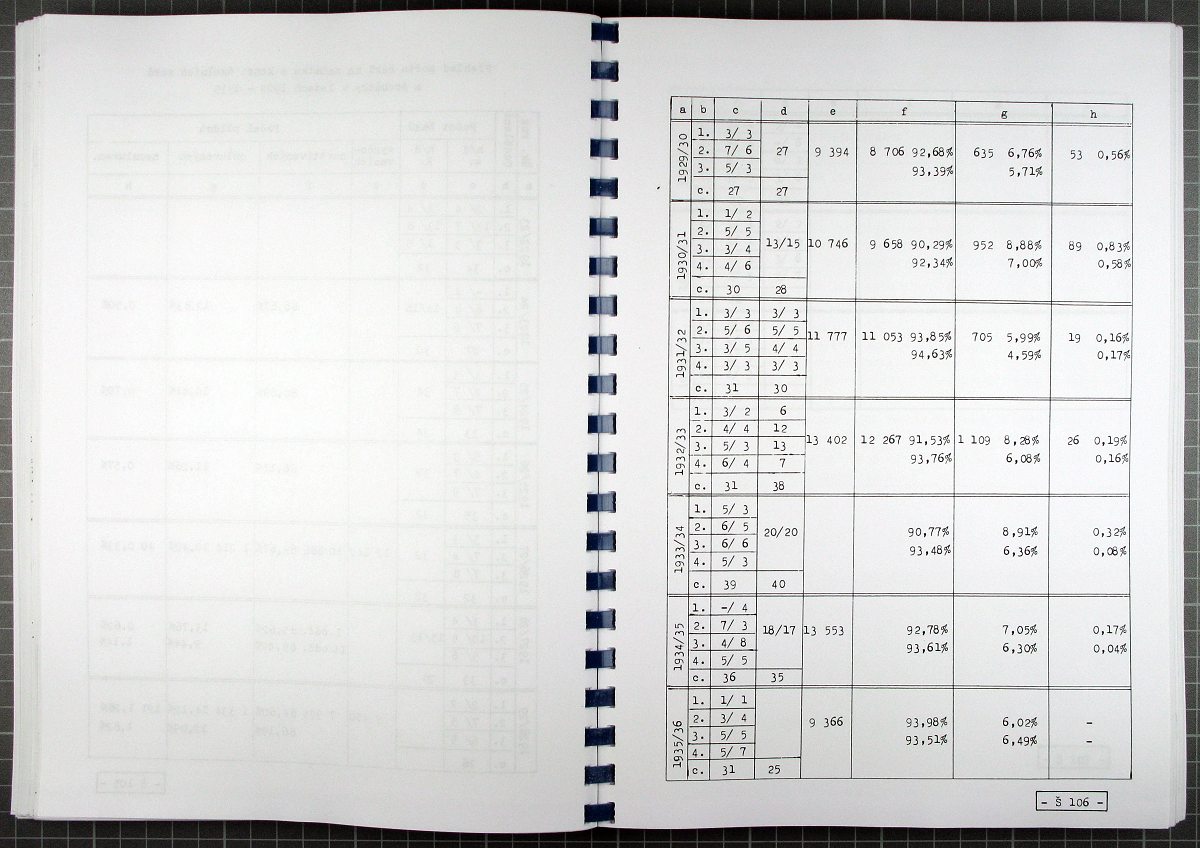 a b c d e f g h
1929/30
1. 3/ 3
2. 7/ 6 27 9 394 8 706 92,68% 635 6,76% 53 0,56%
3. 5/ 3 93,39% 5,71%
c. 27 27
1930/31
1. 1/ 2
2. 5/ 5
3. 3/ 4 13/15 10 746 9 658 90,29% 952 8,88% 89 0,83%
4. 4/ 6 92,34% 7,00% 0,58%
c. 30 28
1931/32
1. 3/ 3 3/ 3
2. 5/ 6 5/ 5 11 777 11 053 93,85% 705 5,99% 19 0,16%
3. 3/ 5 4/ 4 94,63% 4,59% 0,17%
4. 3/ 3 3/ 3
c. 31 30
1932/33
1. 3/ 2 6
2. 4/ 4 12
3. 5/ 3 13 13 402 12 267 91,53% 1 109 8,28% 26 0,19%
4. 6/ 4 7 93,76% 6,08% 0,16%
c. 31 38
1933/34
1. 5/ 3
2. 6/ 5 20/20 90,77% 8,91% 0,32%
3. 6/ 6 93,48% 6,36% 0,08%
4. 5/ 3
c. 39 40
1934/35
1. -/ 4
2. 7/ 3 18/17 13 553 92,78% 7,05% 0,17%
3. 4/ 8 93,61% 6,30% 0,04%
4. 5/ 5
c. 36 35
1935/36
1. 1/ 1
2. 3/ 4 9 366 93,98% 6,02% -
3. 5/ 5 93,51% 6,49% -
4. 5/ 7
c. 31 25
- Š 106 -